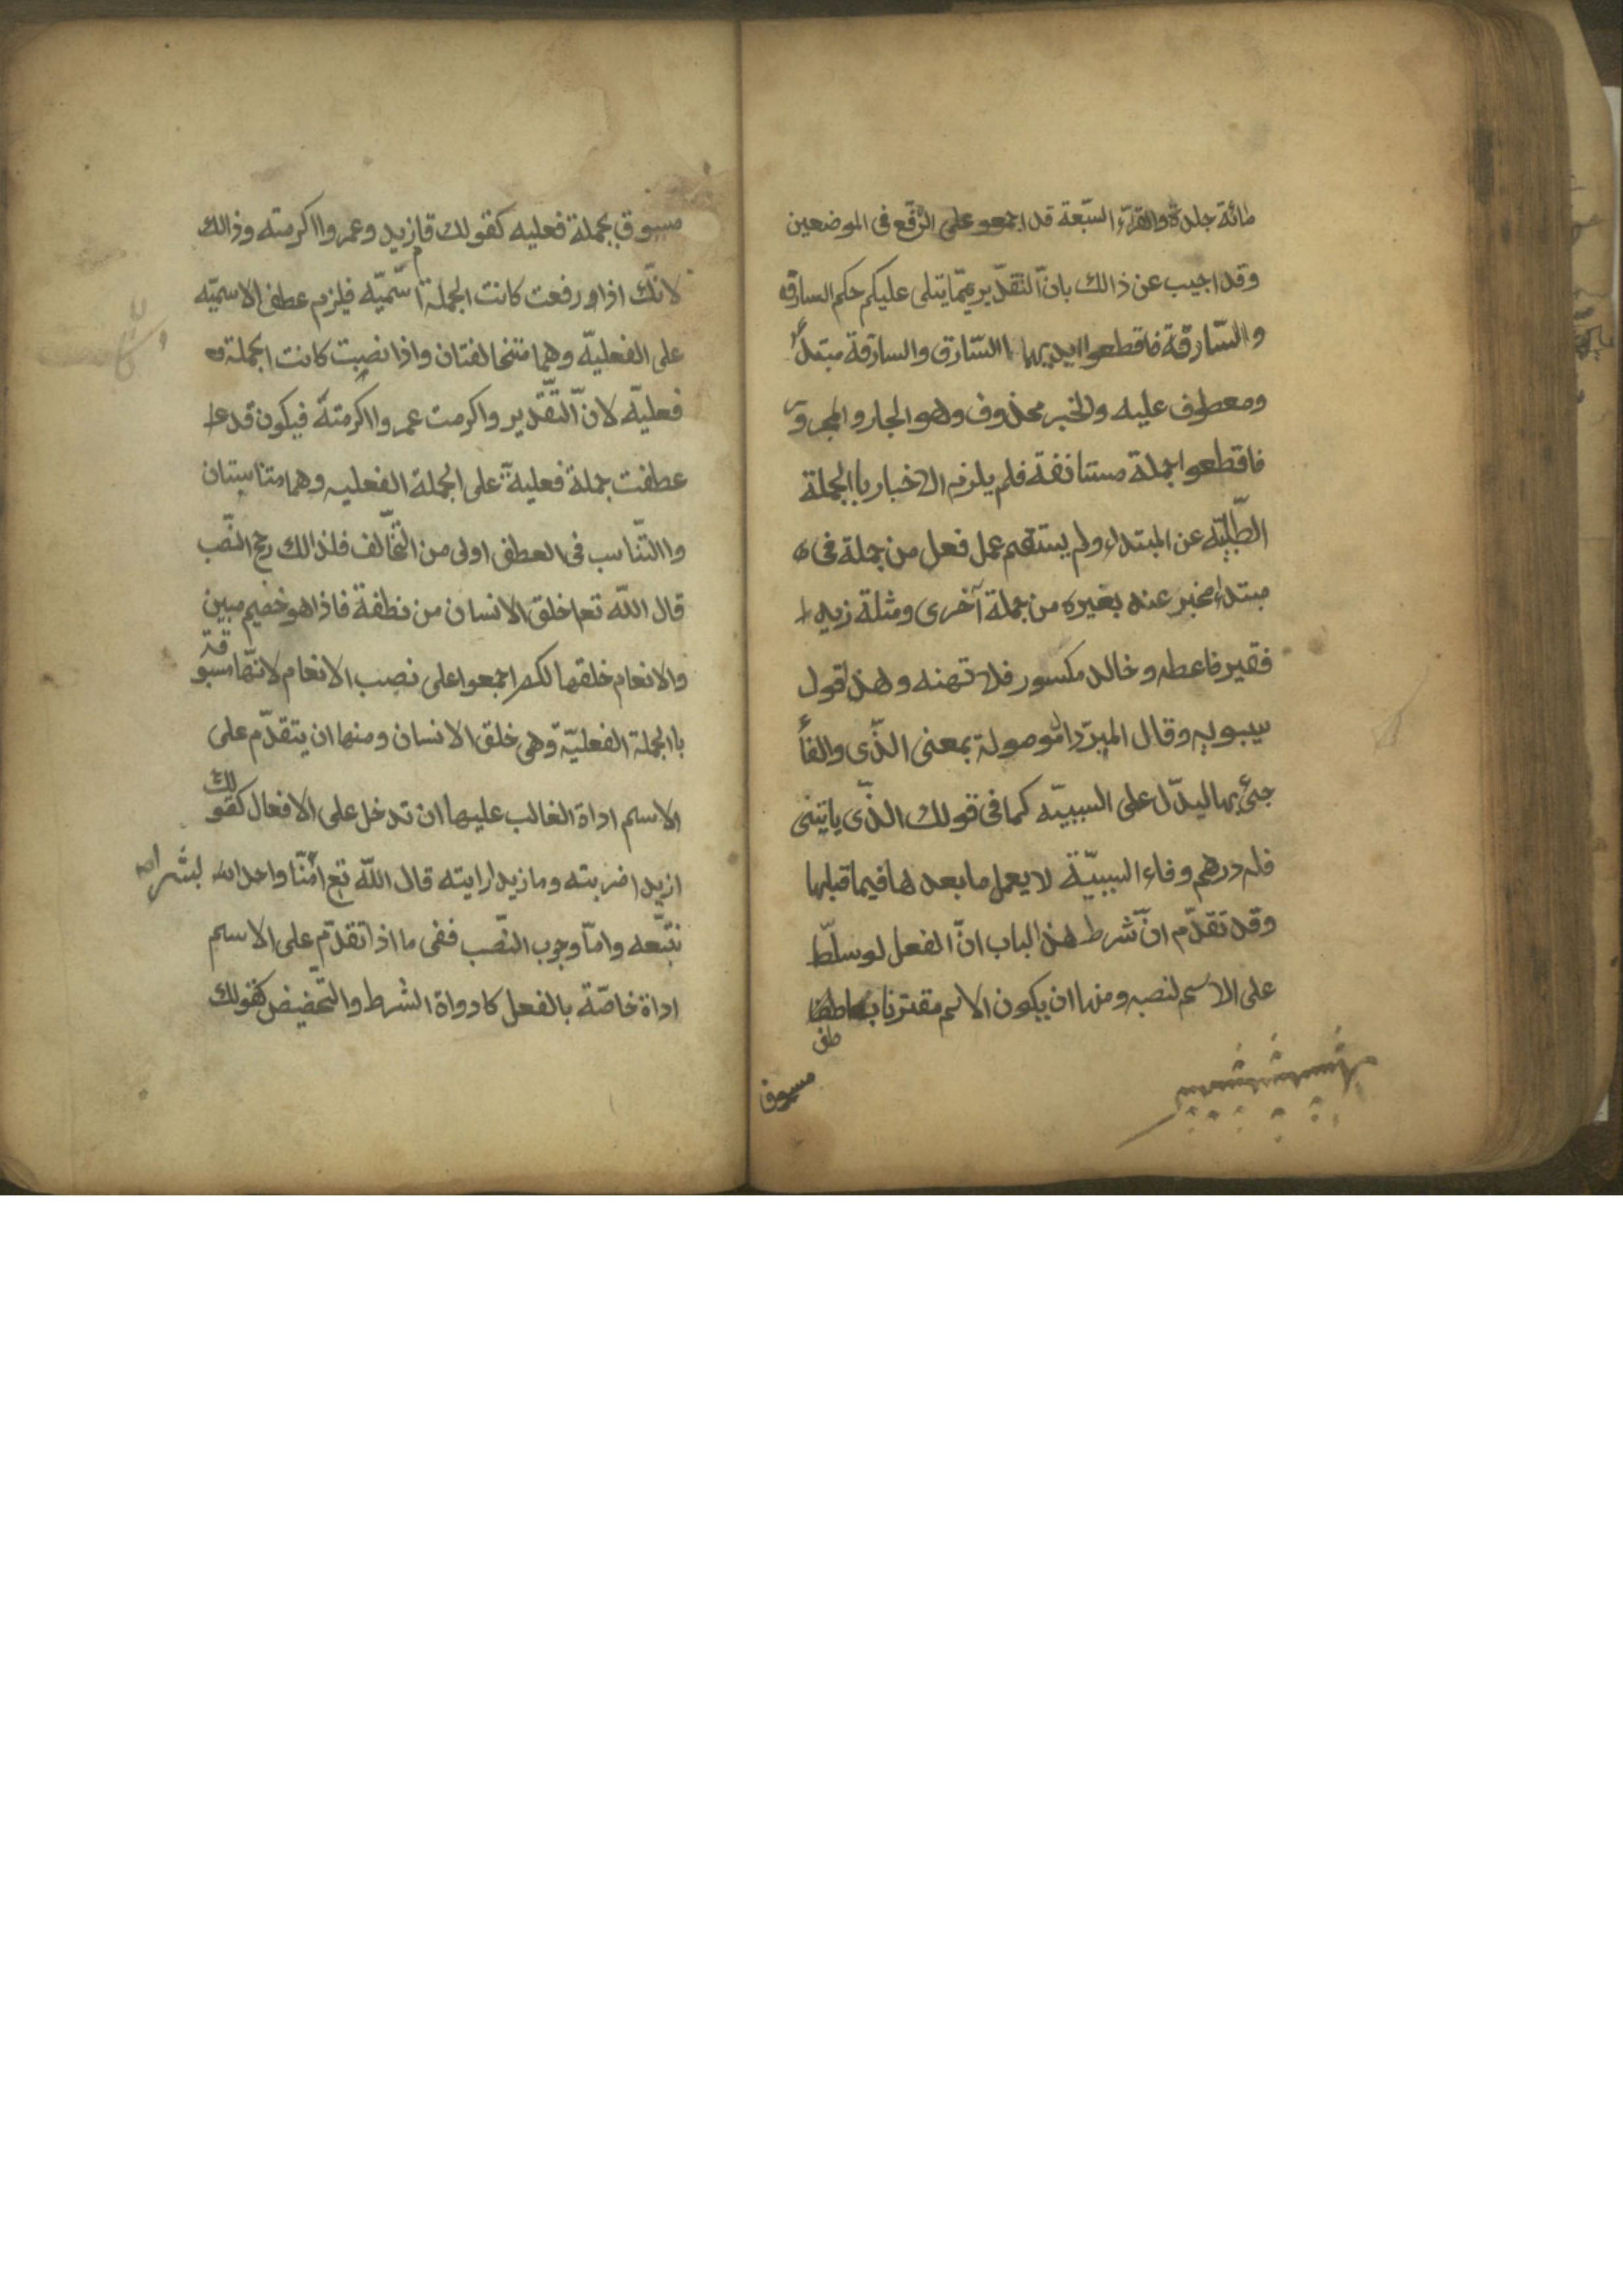 مائة جلدة والقراء السّبعة قد اجمعو على الرّفع فى الموضعين
وقد اجيب عن ذالك بانّ التقدير ممّا يتلى عليكم حكم السارق
والسّارقة فاقطعوا ايديهما االسّارق والسارقة مبتدأ
ومعطوف عليه والخبر محذوف وهو الجار والمجرور
فاقطعوا جملة مستانفة فلم يلزم الاخبار باالجملة
الطّلبيّه عن المبتداء ولم يستقم عمل فعل من جملة فى
مبتداء مخبر عنه بغيره من جملة آخرى ومثلة زيد
فقير فاعطه وخالد مكسور فلا تهنه وهذا قول
سيبويه وقال المبرّد ال موصولة بمعنى الذّى والفأ
جئ بها ليدّل على السببيّه كما فى قولك الذّى ياتينى
فله درهم وفاء السببيّة لا يعمل ما بعد ها فيما قبلها
وقد تقدّم انّ شرط هذ الباب انّ الفعل لو سلّط
على الاسم لنصبه ومنها ان يكون الاسم مقترنا بعاطف
طف
مسبوق
مسبوق بجملة فعليه كقولك قام زيد وعمروا اكرمته وذالك
لانّك اذا رفعت كانت الجملة اسّميّه فيلزم عطف الاسميّه
على الفعليّه وهما متخالفتان واذا نصبت كانت الجملة
فعليّه لانّ التّقدير واكرمت عمروا اكرمتة فيكون قد
عطفت جملة فعلية على الجملة الفعليه وهما متناسبتان
واالتّناسب فى العطف اولى من التّخالف فلذالك رجح النصّب
قال اللّه تعا خلق الانسان من نطفة فاذا هو خصيم مبين
والانعام خلقها لكم اجمعوا على نصب الانعام لانّها مسبوقة
باالجملة الفعليّة وهى خلق الانسان ومنها ان يتقدّم على
الاسم اداة الغالب عليها ان تدخل على الافعال كقولك
ازيدا ضربته وما زيدا رايته قال اللّه تع ابشرا منّا واحدا
نتبّعه وامّا وجوب النصّب ففى ما اذا تقدّم على الاسم
اداة خاصّة بالفعل كادواة الشرط والتّحضيض كقولك